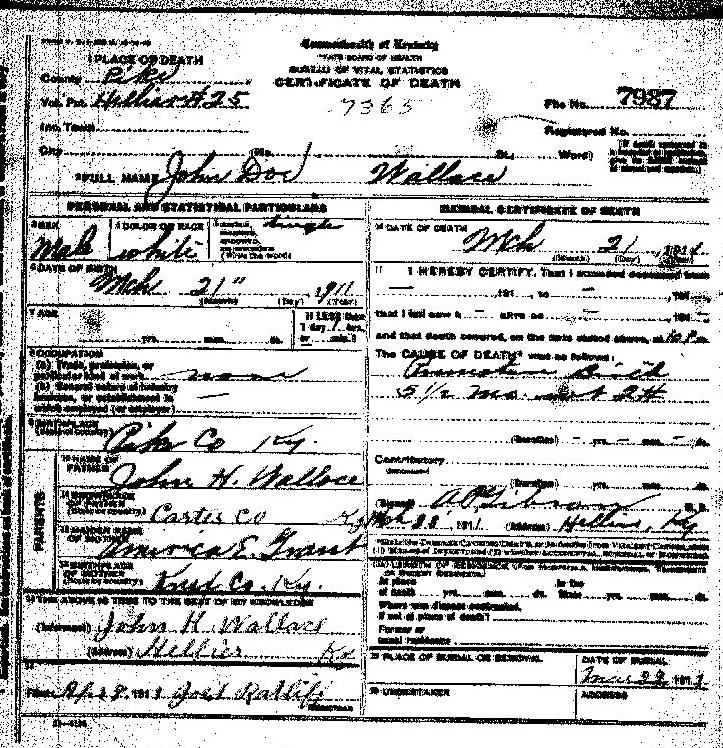 Commonwealth of Kentucky
STATE BOARD OF HEALTH
BUREAU OF VITAL STATISTICS
CERTIFICATE OF DEATH
1 PLACE OF DEATH
County Pike
Vot. Pct. Hellier #25
7365
File No. 7987
Inc. Town
Registered No.
City (No. St., Ward)
2 FULL NAME John Doe Wallace
PERSONAL AND STATISTICAL PARTICULARS
3 SEX Male
4 COLOR OR RACE white
single
6 DATE OF BIRTH
Mch 21
(Month) (Day) (Year)
7 AGE
yrs. mos. ds.
8 OCCUPATION
(a) Trade, profession, or
particular kind of work none
(b) General nature of industry
business, or establishment in
which employed (or employer) —
9 BIRTHPLACE
(State or country) Pike Co Ky.
PARENTS
10 NAME OF
FATHER John H. Wallace
11 BIRTHPLACE
OF FATHER
(State or country) Carter Co Ky
12 MAIDEN NAME
OF MOTHER America E. Grant
13 BIRTHPLACE
OF MOTHER
(State or country) Knott Co. Ky.
14 THE ABOVE IS TRUE TO THE BEST OF MY KNOWLEDGE
(Informant) John H Wallace
(Address) Hellier Ky
15
Filed Apr 8, 191 Joel Ratliff
REGISTRAR
MEDICAL CERTIFICATE OF DEATH
16 DATE OF DEATH
Mch 21
(Month) (Day) (Year)
17 I HEREBY CERTIFY, That I attended deceased from
— 191 , to — , 191
that I last saw h — alive on — , 191
and that death occurred, on the date stated above, at 10 P m.
The CAUSE OF DEATH* was as follows:
Premature Birth
5 1/2 mo.
(Duration) – yrs. – mos. – ds.
Contributory
(Duration) yrs. mos. ds.
(Signed) A P Gibson M. D.
Mch 22, 191 (Address) Hellier, Ky
At place
of death yrs. mos. ds. In the State yrs. mos. ds.
Where was disease contracted,
if not at place of death?
Former or
usual residence
19 PLACE OF BURIAL OR REMOVAL
DATE OF BURIAL
Mar 22 191
20 UNDERTAKER
ADDRESS